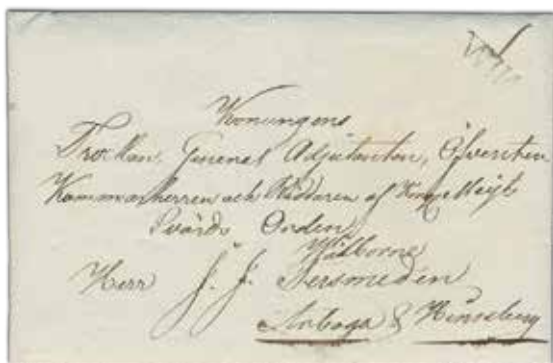 Konungens
Troman, General Adjutanten, Öfversten
Kammarherren och Riddaren af Kongl Maijts
Svärds Orden,
Wälborne
Herr J. J. Tersmeden
Arboga & Hinseberg